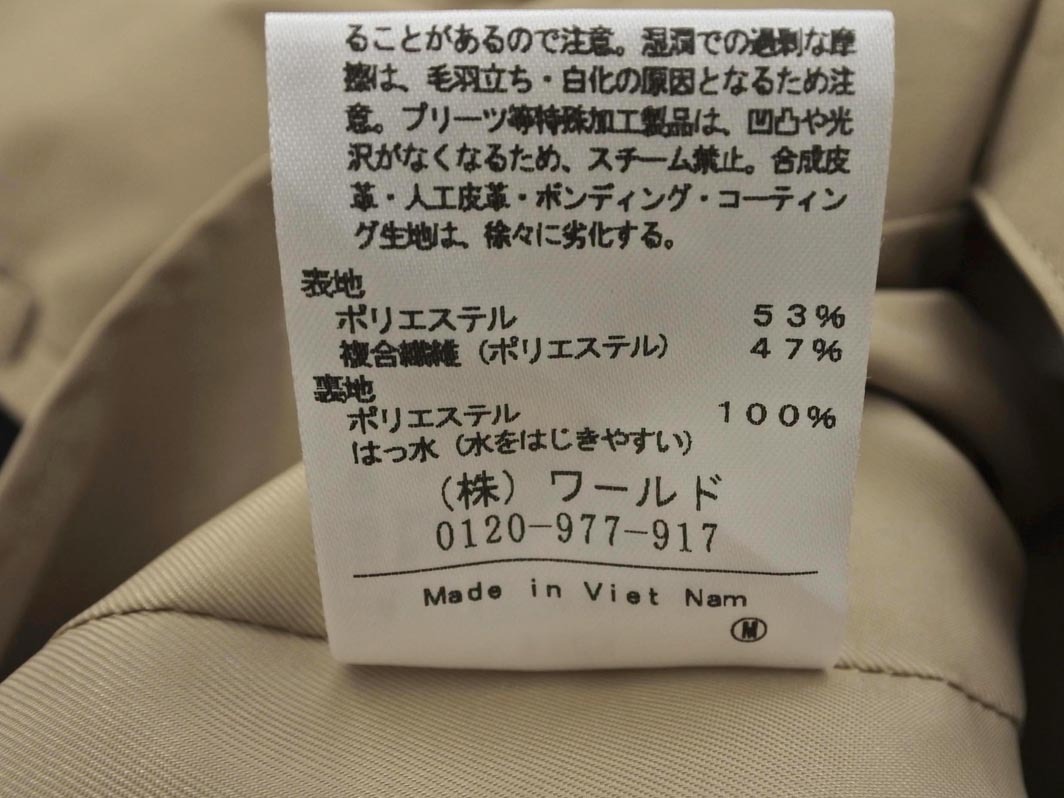 ることがあるので注意。湿潤での過剰な摩
擦は、毛羽立ち・白化の原因となるため注
意。プリーツ等特殊加工製品は、凹凸や光
沢がなくなるため、スチーム禁止。合成皮
革・人工皮革・ボンディング・コーティン
グ生地は、徐々に劣化する。
表地
ポリエステル 53%
複合繊維(ポリエステル) 47%
裏地
ポリエステル 100%
はっ水(水をはじきやすい)
(株)ワールド
0120-977-917
Made in Viet Nam
Ⓜ